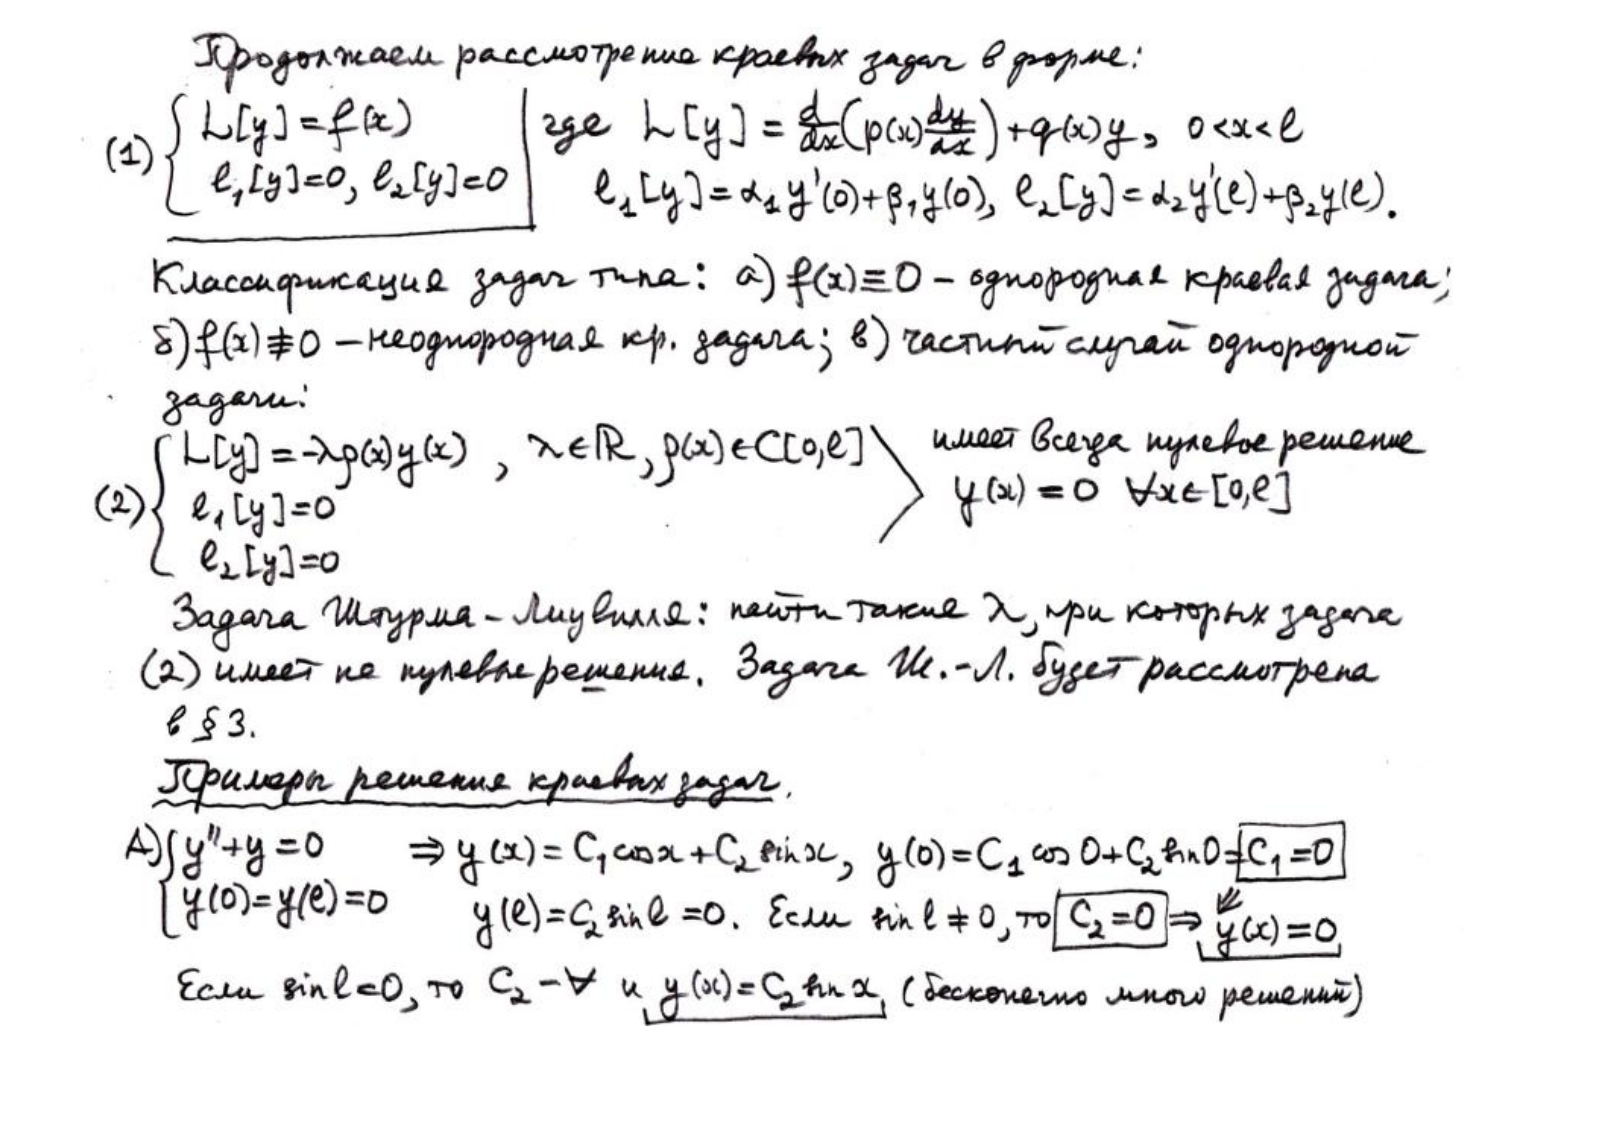 Продолжаем рассмотрение краевых задач в форме:
(1) { L[y] = f(x) | где L[y] = d/dx (p(x) dy/dx) + q(x)y, 0<x<l
l₁[y]=0, l₂[y]=0 | l₁[y] = α₁y'(0)+β₁y(0), l₂[y]=α₂y'(l)+β₂y(l).
Классификация задач типа: а) f(x)≡0 – однородная краевая задача;
б) f(x)≢0 – неоднородная кр. задача; в) частный случай однородной
задачи:
(2) { L[y] = -λρ(x)y(x), λ∈ℝ, ρ(x)∈C[0,l] > имеет всегда нулевое решение
l₁[y]=0 y(x) = 0 ∀x∈[0,l]
l₂[y]=0
Задача Штурма-Лиувилля: найти такие λ, при которых задача
(2) имеет не нулевые решения. Задача Ш.-Л. будет рассмотрена
в §3.
Примеры решения краевых задач.
А) { y''+y=0 ⇒ y(x) = C₁cosx + C₂sinx, y(0)=C₁cos0+C₂sin0=C₁=0
y(0)=y(l)=0 y(l)=C₂sinl=0. Если sinl≠0, то C₂=0 ⇒ y(x)=0
Если sinl=0, то C₂ – ∀ и y(x)=C₂sinx (бесконечно много решений)